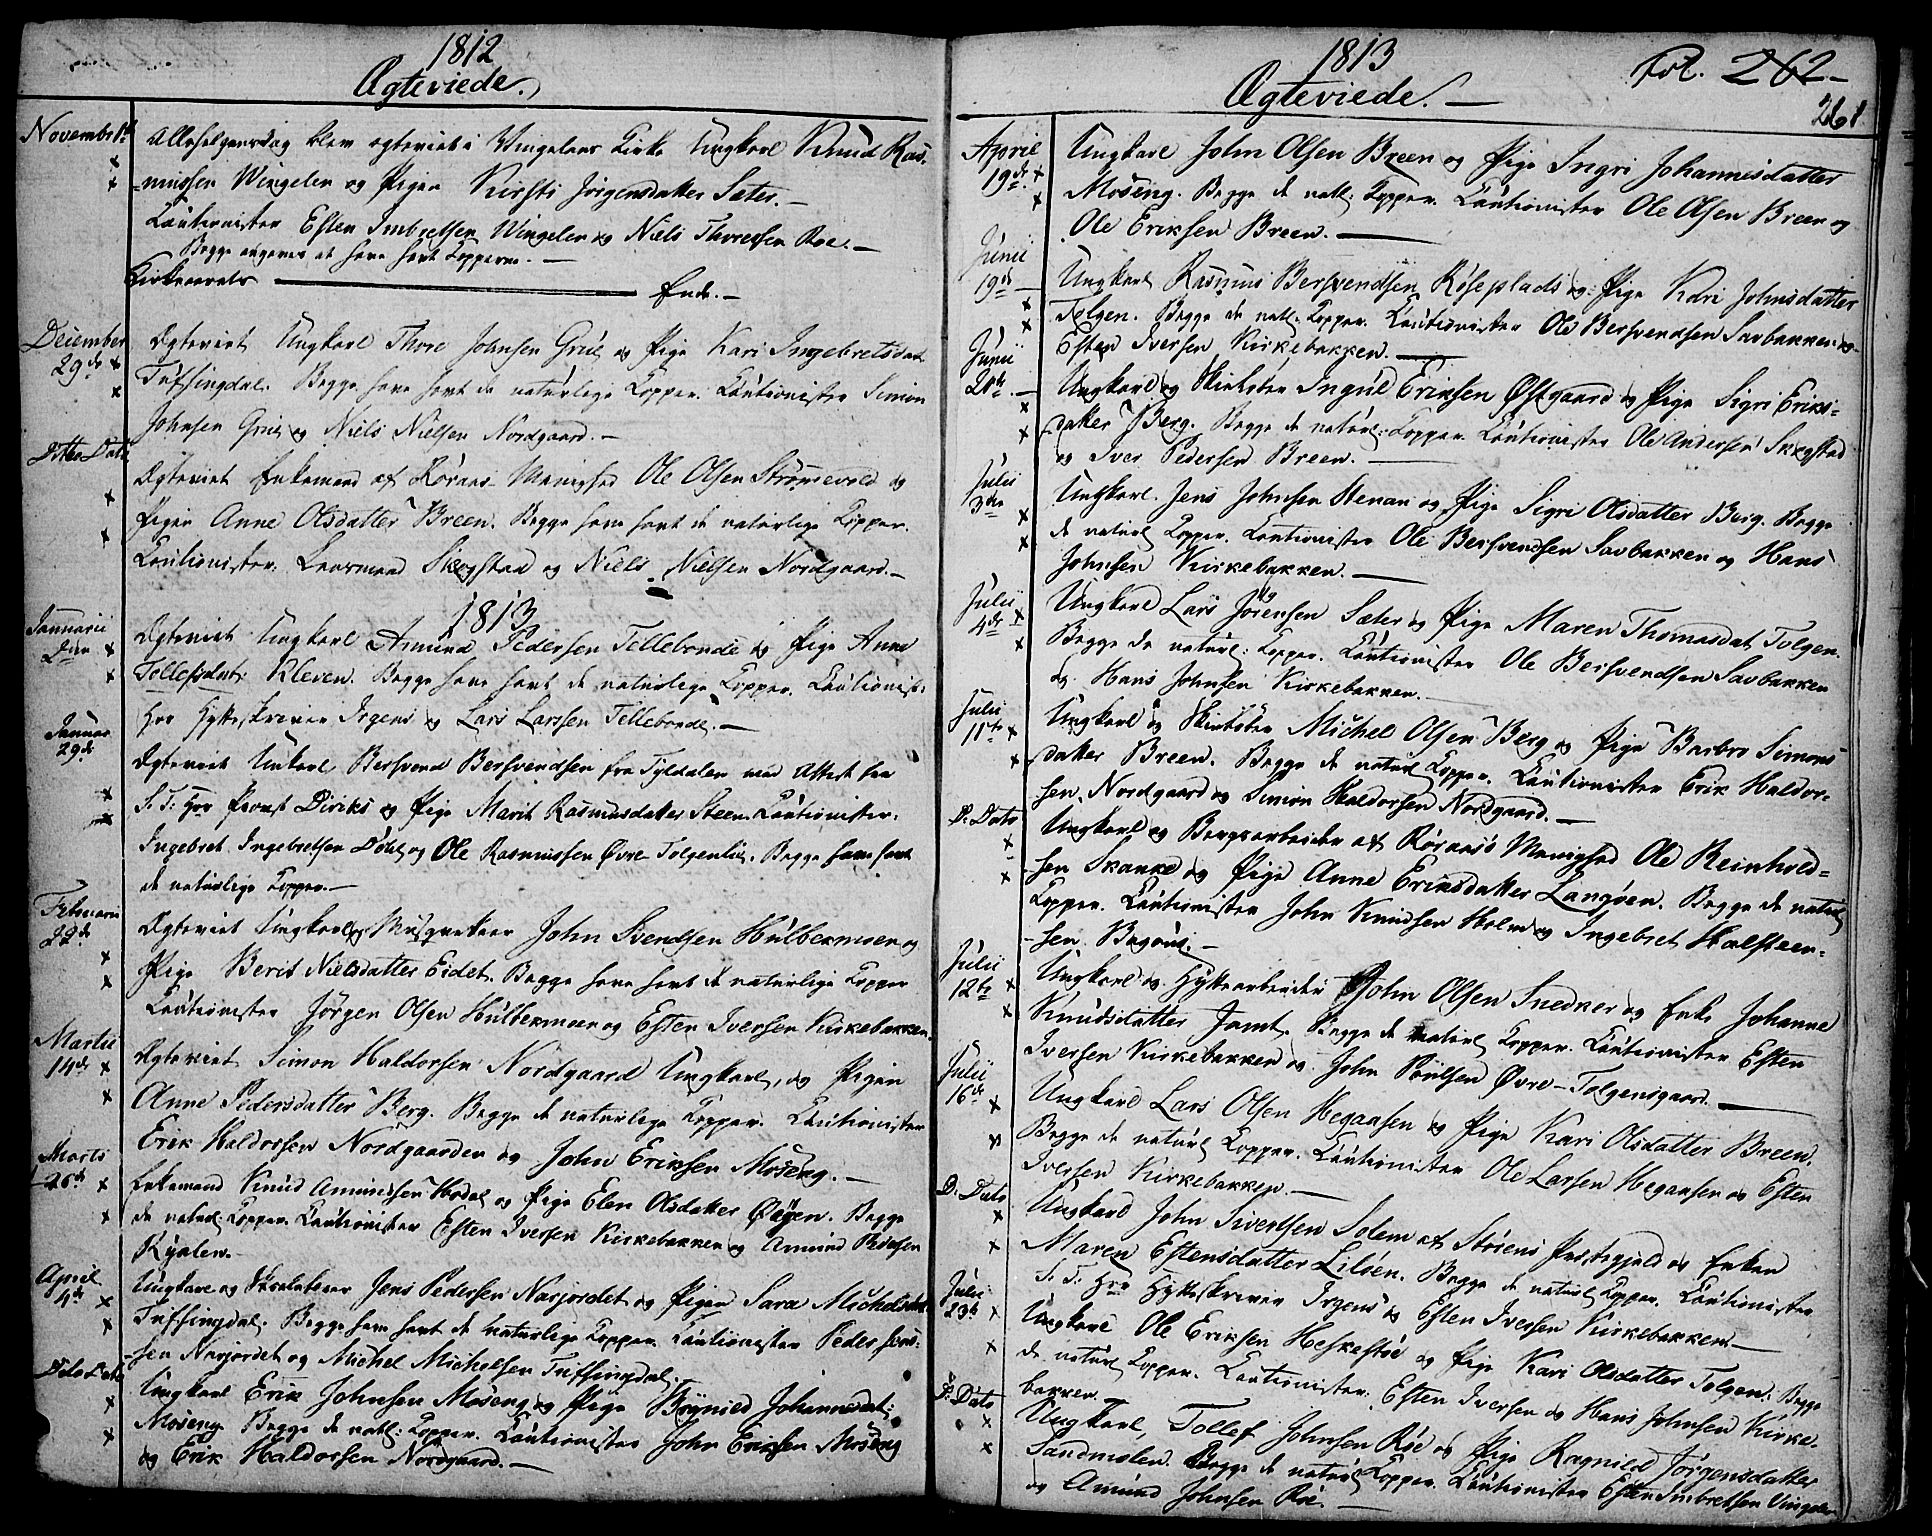 1812
Ægteviede.
Novembr 1ste Allehelgensdag blev ægteviet i Vingelens Kirke Ungkarl Knud Ras-
mussen Wingelen og Pigen Kirsti Jørgensdatter Sæter.
Cautionister Esten Imbretsen Wingelen og Niels Thoresen Roe.
Begge angaves at have havt Kopperne.
Kirkeaarets Ende.
December 29de Ægteviet Ungkarl Thore Johnsen Grue og Pige Kari Ingebretsdat.
Tufsingdal. Begge have havt de naturlige Kopper. Cautionister Simon
Johnsen Grue og Niels Nielsen Nordgaard.
Ditto Dato Ægteviet Enkemand af Røraas Menighed Ole Olsen Strømevold og
Pigen Anne Olsdatter Breen. Begge have havt de naturlige Kopper.
Cautionister: Lensmand Skogstad og Niels Nielsen Nordgaard.
1813
Januarii 2den Ægteviet Ungkarl Amund Pedersen Tellebonde og Pige Anne
Tollefsdat: Kleven. Begge have havt de naturlige Kopper. Cautionist:
Hrr Hytteskriver Irgens og Lars Larssen Tellebonde.
Januar 29de Ægteviet Unkarl Bersvend Bersvendsen fra Tyldalen med Attest fra
S. T. Hrr Provst Diriks og Pige Marit Rasmusdatter Steen. Cautionister:
Ingebret Ingebretsen Døhl og Ole Rasmussen Øvre-Tolgenlie. Begge have havt
de naturlige Kopper.
Februarii 22de Ægteviet Ungkarl og Musqueteer John Svendsen Hulbekmoen og
Pige Berit Nielsdatter Eidet. Begge have havt de naturlige Kopper
Cautionister Jørgen Olsen Hulbekmoen og Esten Iversen Kirkebakken.
Martii 14de Ægteviet Simon Haldorsen Nordgaard Ungkarl, og Pigen
Anne Pedersdatter Berg. Begge de naturlige Kopper. Cautionister
Erik Haldorsen Nordgaarden og John Eriksen Moseng.
Marts 26de Enkemand Knud Amundsen Hodal og Pige Elen Olsdatter Øien. Begge
de naturl. Kopper. Cautionister Esten Iversen Kirkebakken og Amund
Ryalen.
April 4de Ungkarl og Skieløber Jens Pedersen Narjordet og Pigen Sara Michelsdat
Tufsingdal. Begge have havt de naturlige Kopper. Cautionister Peder Jens-
sen Narjordet og Michel Michelsen Tufsingdal.
Dito Dato Ungkarl Erik Johnsen Moseng og Pige Rogniel Johannesdat:
Moseng Begge de natl: Kopper. Cautionister John Eriksen Moseng
og Erik Haldorsen Nordgaard.
1813
Fol. 262
261
Ægteviede.
April 19de Ungkarl John Olsen Breen og Pige Ingri Johannesdatter
Moseng. Begge de natl: Kopper. Cautionister Ole Olsen Breen og
Ole Eriksen Breen.
Junii 19de Ungkarl Rasmus Bersvendsen Røseplads og Pige Kari Johnsdatter
Tolgen. Begge de natl. Kopper. Cautionister Ole Bersvendsen Savbakken og
Esten Iversen Kirkebakken.
Junii 20de Ungkarl og Skieløber Ingul Eriksen Østgaard og Pige Sigri Eriks-
datter Berg. Begge de naturl: Kopper. Cautionister Ole Andersen Skogstad
og Iver Pedersen Breen.
Julii 3die Ungkarl. Jens Johnsen Henan og Pige Sigri Olsdatter Berg. Begge
de naturl Kopper. Cautionister Ole Bersvendsen Savbakken og Hans
Johnsen Kirkebakken.
Julii 4de Ungkarl Lars Jørgensen Sæter og Pige Maren Thomasdat. Tolgen.
Begge de naturl: Kopper. Cautionister Ole Bersvendsen Savbakken
og Hans Johnsen Kirkebakken.
Julii 11te Ungkarl og Skieløber Michel Olsen Berg og Pige Barbro Simons
datter Breen. Begge de naturl Kopper. Cautionister Erik Haldor-
sen Nordgaard og Simon Haldorsen Nordgaard.
D: Dato Ungkarl og Bergarbeider af Røraas Menighed Ole Reinhold-
sen Skanke og Pige Anne Eriksdatter Langøen. Begge de naturl
Kopper. Cautionister John Knudsen Holm og Ingebret Halsteen-
sen
Julii 12te Ungkarl og Hyttearbeider John Olsen Snedker og Enke Johanne
Knudsdatter Jamt. Begge de naturl Kopper. Cautionister Esten
Iversen Kirkebakken og John Poulsen Øvre-Tolgensgaard.
Julii 16de Ungkarl Lars Olsen Hegaasen og Pige Kari Olsdatter Breen.
Begge de naturl Kopper. Cautionister Ole Larsen Hegaasen og Esten
Iversen Kirkebakken.
D: Dato Ungkarl John Sivertsen Solem af Størens Præstegjeld og Enken
Maren Estensdatter Liløen. Begge de naturl Kopper. Cautionister
S. T. Hrr Hytteskriver Irgens og Esten Iversen Kirkebakken.
Julii 23de Ungkarl Ole Eriksen Heskestøe og Pige Kari Olsdatter Tolgen. Begge
de naturl Kopper. Cautionister: Esten Iversen og Hans Johnsen Kirke-
bakken.
D: Dato Ungkarl, Tollef Johnsen Røe og Pige Ragniel Jørgensdatter
Sandmælen. Begge de naturl Kopper. Cautionister Esten Imbretsen Vingelen
og Amund Johnsen Røe.